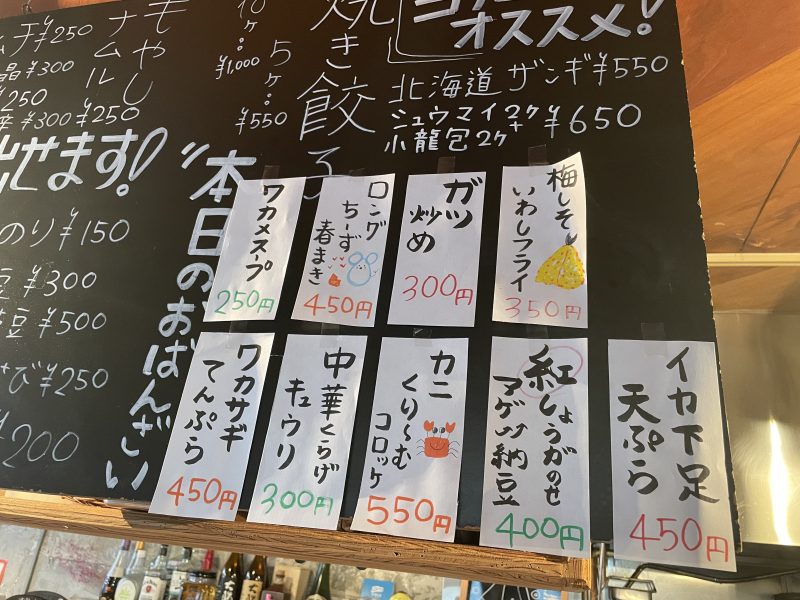 もやし
ナムル
¥250
¥300
¥250
¥300 ¥250
出せます!
のり ¥150
豆 ¥300
豆 ¥500
び ¥250
¥200
焼き餃子
10ケ:
¥1,000
5ケ:
¥550
オススメ!
北海道 ザンギ ¥550
シュウマイ2ケ
+
小龍包2ケ
¥650
本日のおばんざい
ワカメスープ
250円
ロング
ちーず
春まき
450円
ガツ
炒め
300円
梅しそ
いわしフライ
350円
ワカサギ
てんぷら
450円
中華くらげ
キュウリ
300円
カニ
くり〜む
コロッケ
550円
紅しょうがのせ
アゲ納豆
400円
イカ下足
天ぷら
450円